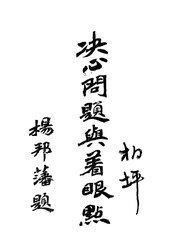 柏坪
决心問題與着眼點
楊邦藩題